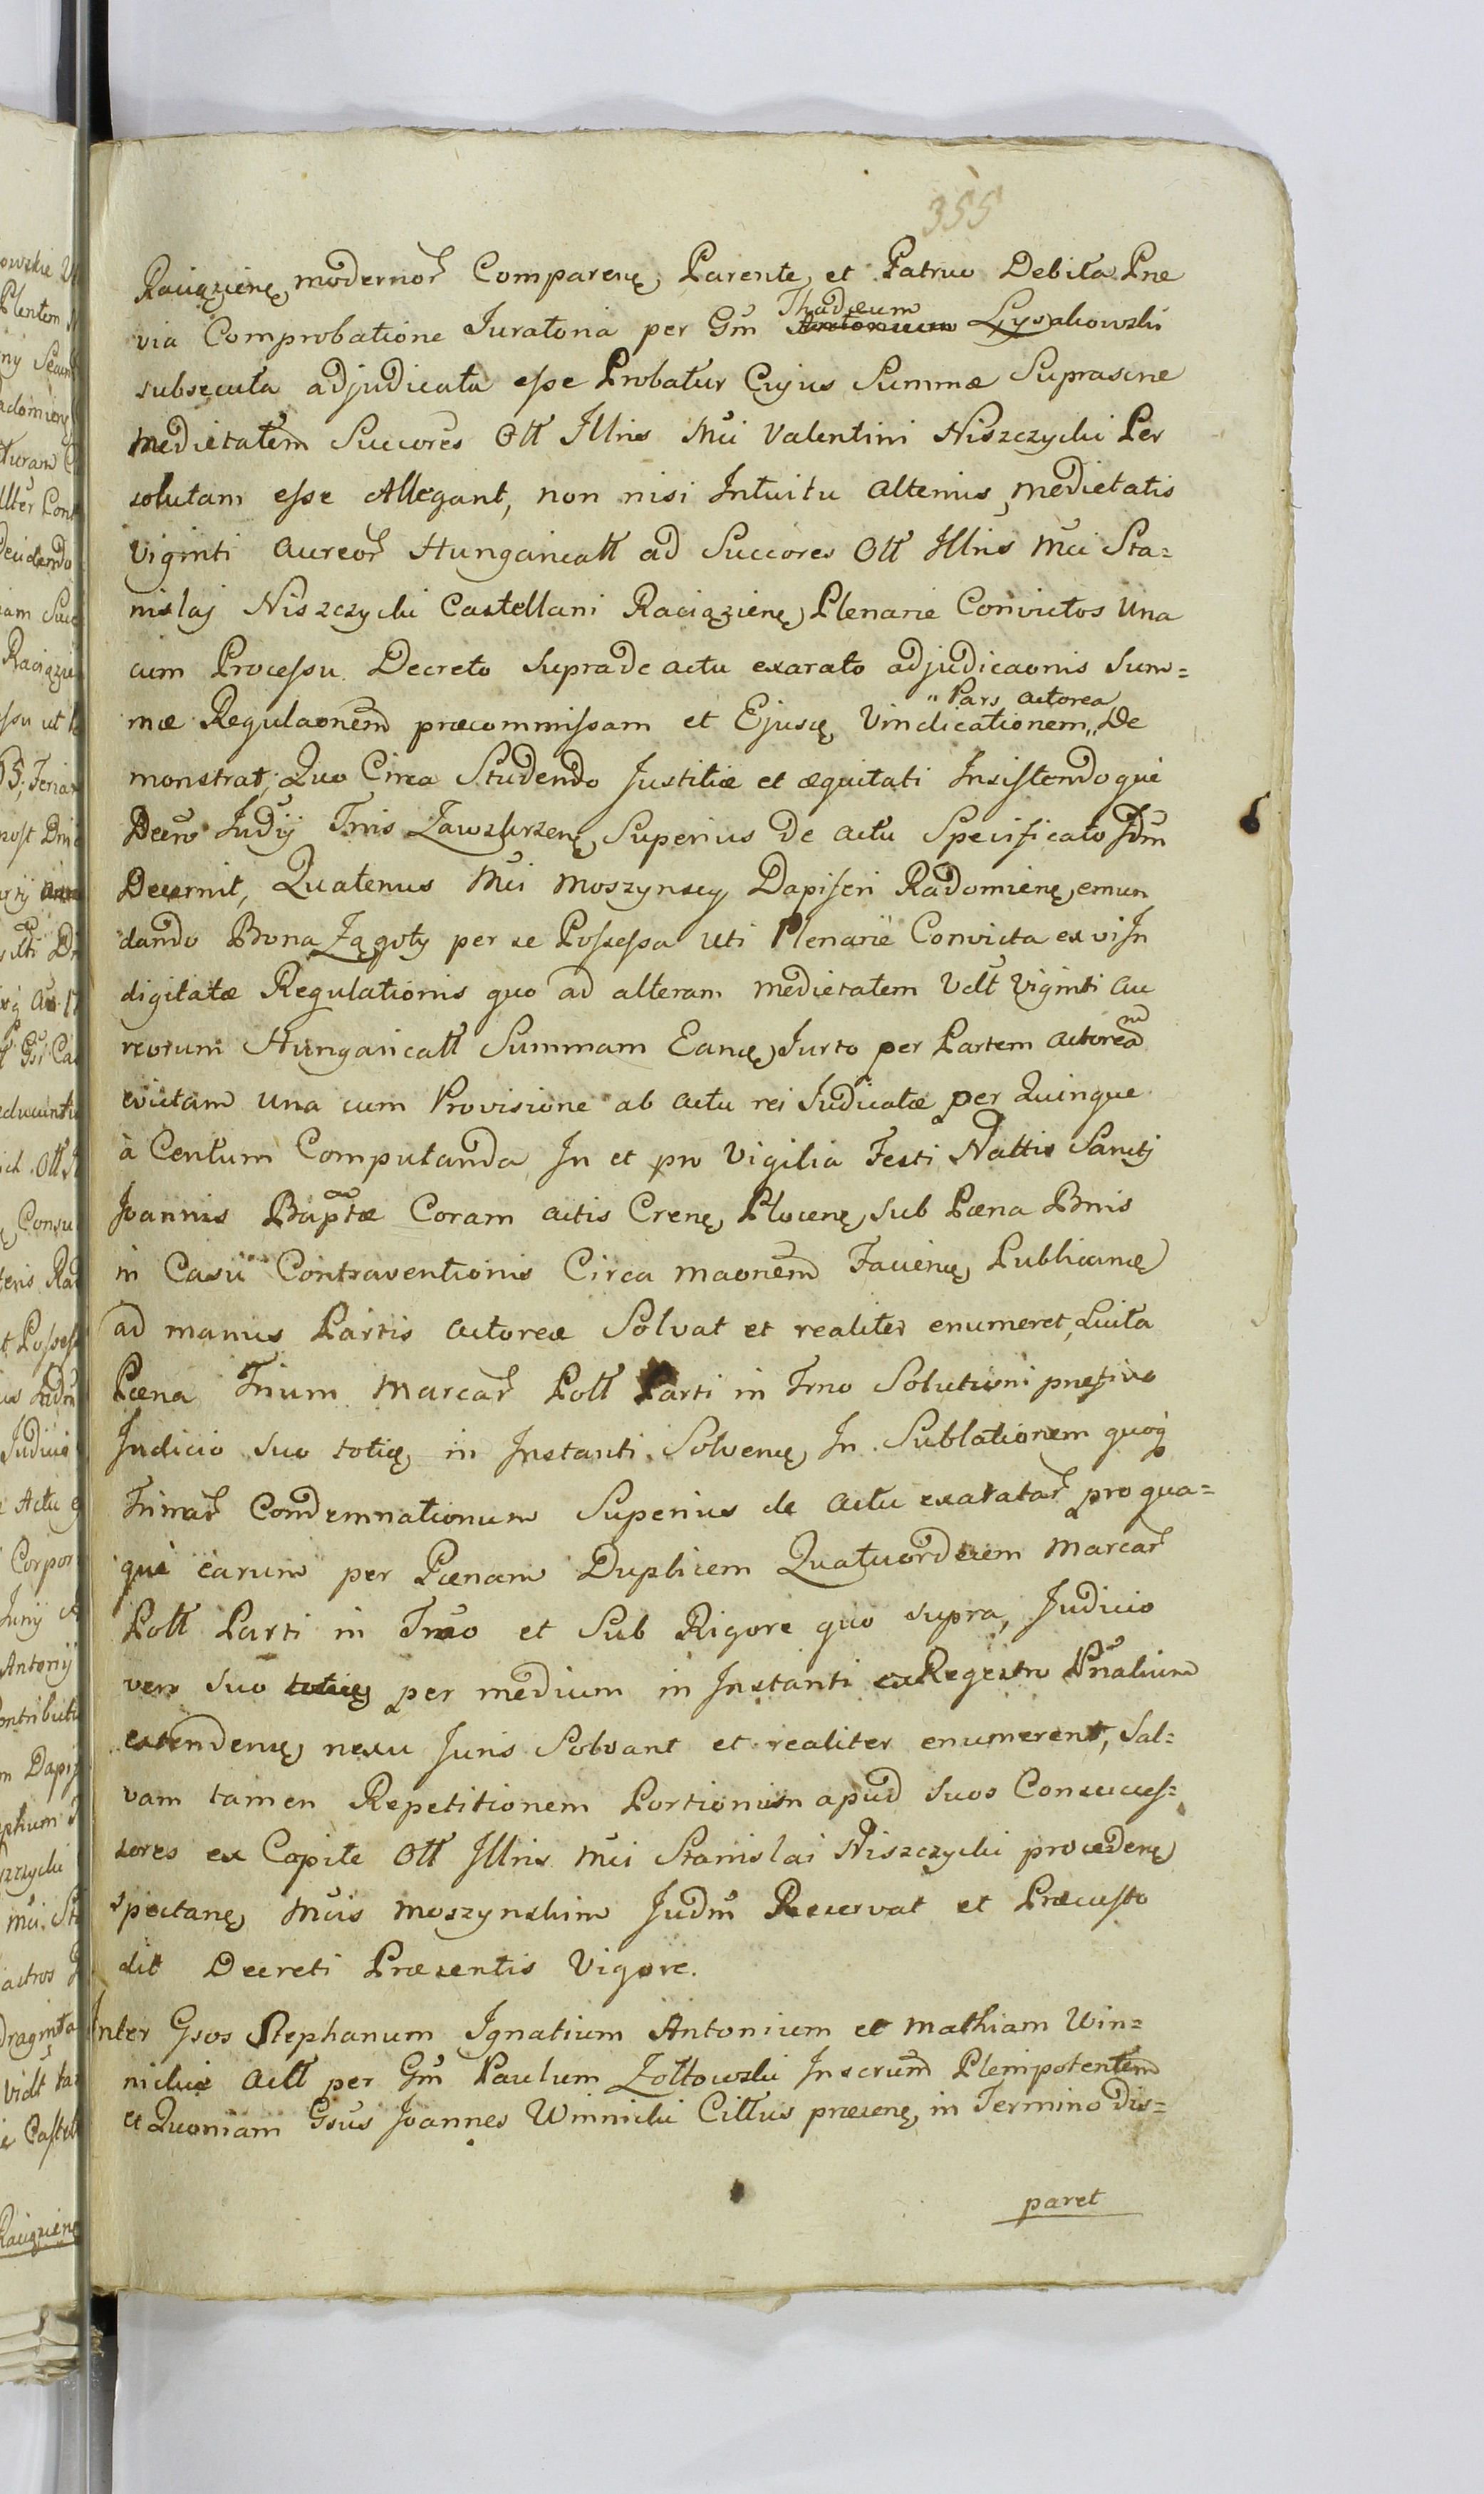 355
Raciązienę modernor Comparenę Parente et Patruo Debita Præ
via Comprobatione Juratoria per Gm Thadæum Antonium Łysakowski
subsecuta adjudicata esse Probatur Cujus Summæ Suprascræ
medietatem Succores Oll Illris Mci Valentini Niszczycki Per
solutam esse Allegant, non nisi Intuitu alterius medietatis
Viginti aureor Hungaricall ad Succores Oll Illris Mci Sta=
nislaj Niszczycki Castellani Raciązienę Plenarie Convictos Una
cum Processu Decreto Supra de actu exarato adjudicaonis Sum=
mæ Regulaonem præcommissam et Ejuscę Vindicationem " Pars actorea
De
monstrat; Quo Circa Studendo Justitiæ et æquitati Insistendo què
Decro Judij Tris Zawskrzenę Superius de actu Specificato Jdm
Decernit, Quatenus Mci Moszynscy Dapiferi Radomienę emun
dando Bona Zągoty per se Possessa uti Plenarie Convicta ex vi In
digitatæ Regulationis quo ad alteram medietatem Vdlt Viginti au
reorum Hungaricall Summam Eancę Jurto per Partem actoream
evictam una cum Provisione ab actu rei Judicatæ per Quinque
à Centum Computanda In et pro Vigilia Festi Nattis Sancti
Joannis Baptæ Coram actis Crenę Plocenę sub Pæna Bnis
in Casu Contraventionis Circa maonem Facienę Publicancę
ad manus Partis actoreæ Solvat et realiter enumeret, Luita
Pæna Trium Marcar Poll Parti in Trno Solutioni præfixo
Judicio suo toticę in Instanti Solvencę In Sublationem quoq
Trinar Condemnationum Superius de actu exaratar pro qua=
què earum per Pænam Duplicem Quatuordecim Marcar
Poll Parti in Trno et Sub Rigore quo supra, Judicio
vero suo toticę per medium in Instanti ex Regestro Pnalium
extendencę nexu Juris Solvant et realiter enumerent, Sal=
vam tamen Repetitionem Portionum apud suos Consuccess=
sores ex Capite Oll Illris Mci Stanislai Niszczycki procedenę
spectanę Mcis Moszynskim Judm Reservat et Præcusto
dit Decreti Præsentis Vigore.
Inter Gsos Stephanum Ignatium Antonium et Mathiam Win=
nickie act per Gm Paulum Zołtowski Inscrum Plenipotentem
et Quoniam Gsus Joannes Winnicki Cittus præcenę in Termino Dis=
paret